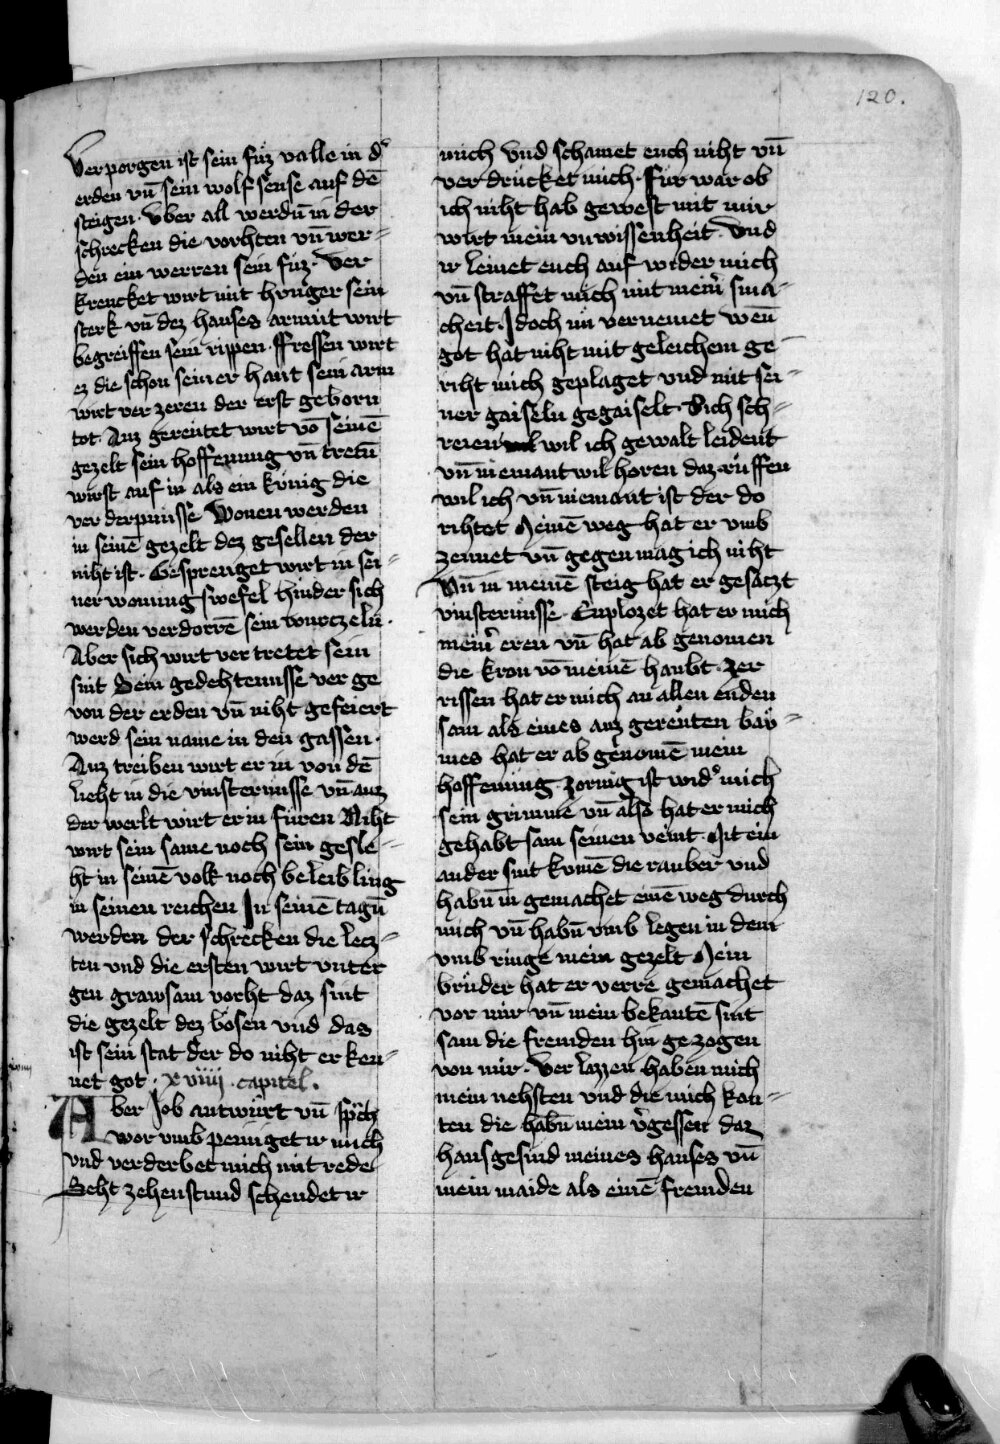 120.
Verporgen ist sein fuͤz valle in dˀ
erden vn̄ sein wolf sense auf dē
steigen. Vber all werdn̄ in der
schrecken die vorhten vn̄ wer-
den ein werren sein fuͤz. Ver
krencket wirt mit hunger sein
sterk vn̄ dez hauses armut wirt
begreiffen sein rippen. Fressen wirt
ez die schon seiner haut sein arm
wirt ver zeren der erst geborn
tot. Auz gereutet wirt vō seinē
gezelt sein hoffenung vn̄ tretn̄
wirst auf in als ein kúnig die
ver derpnusse Wonen werden
in seinē gezelt dez gesellen der
niht ist. Gesprenget wirt in sei-
ner wonung swefel hinder sich
werden verdorrē sein wurczeln.
Aber sich wirt ver tretet sein
snit Sein gedehtenusse ver ge
von der erden vn̄ niht gefeiert
werd sein name in den gassen.
Auz treiben wirt er in von dē
lieht in die vinsternusse vn̄ auz
der werlt wirt er in fuͤren Niht
wirt sein same noch sein gesle-
ht in seinē volk noch beleibling
in seinen reichen In seinē tagn̄
werden der schrecken die lecz-
ten vnd die ersten wirt vnter
gen grawsam vorht daz sint
die gezelt dez bosen vnd das
ist sein stat der do niht er ken-
net got. xviiij. capitel.
Aber Job antwurt vn̄ sp̄ch
wor vmb peiniget ir mich
vnd verderbet mich mit rede
Seht zehenstund schendet ir
mich vnd schamet euch niht vn̄
ver drucket mich. Fur war ob
ich niht hab gewest mit mir
wirt mein vnwissenheit. Vnd
ir leinet euch auf wider mich
vn̄ straffet mich mit meinˀ sma-
cheit. Idoch nu vernemet wen̄
got hat niht mit geleichem ge
riht mich geplaget vnd mit sei-
ner gaiseln gegaiselt. Sich sch-
reien wil ich gewalt leident
vn̄ niemant wil horen daz ruffen
wil ich vn̄ niemant ist der do
rihtet Meinē weg hat er vmb
zeunet vn̄ gegen mag ich niht
Vn̄ in meinē steig hat er gesaczt
vinsternusse. Enplozet hat er mich
meinˀ eren vn̄ hat ab genomen
die kron vō meinē haubt. Zer
rissen hat er mich an allen enden
sam als eines auz gereuten bau-
mes hat er ab genomē mein
hoffenung. Zornig ist widˀ mich
sein grimme vn̄ also hat er mich
gehabt sam seinen veint. Mit ein
ander sint kumē die rauber vnd
habn̄ in gemachet einē weg durch
mich vn̄ habn̄ vmb legen in dem
vmb ringe mein gezelt Mein
bruder hat er verre gemachet
vor mir vn̄ mein bekantē sint
sam die fremden hin gezogen
von mir. Ver lazzen haben mich
mein nehsten vnd die mich kan-
ten die habn̄ mein vˀgessen daz
hausgesind meines hauses vn̄
mein maide als einē fremden